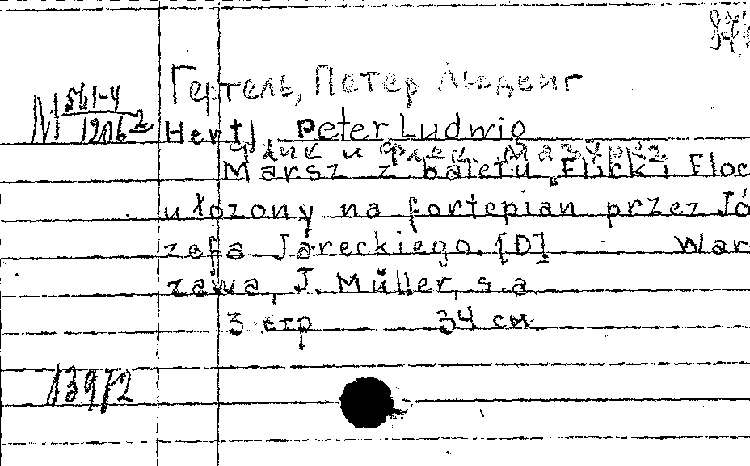 Гертель, Петер Людвиг
М 561-4
1206 2
Hertl, Peter Ludwig
Флик и Флек. Мазурка
Marsz z baletu „Flick i Floc
ułozony na fortepian przez Jó
zefa Jareckiego. [D] War
zawa, J. Müller, s.a.
3 стр 34 см.
13972